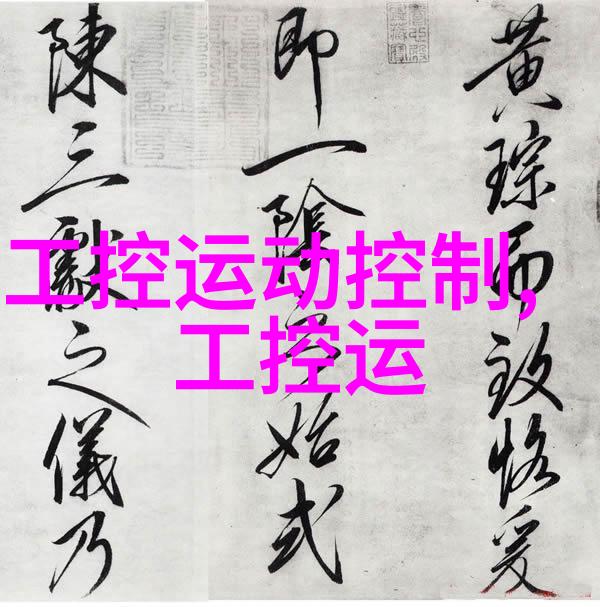 黄琮而致恪爰
即一陰始式
陳三獻之儀乃
工控运动控制,
工控运